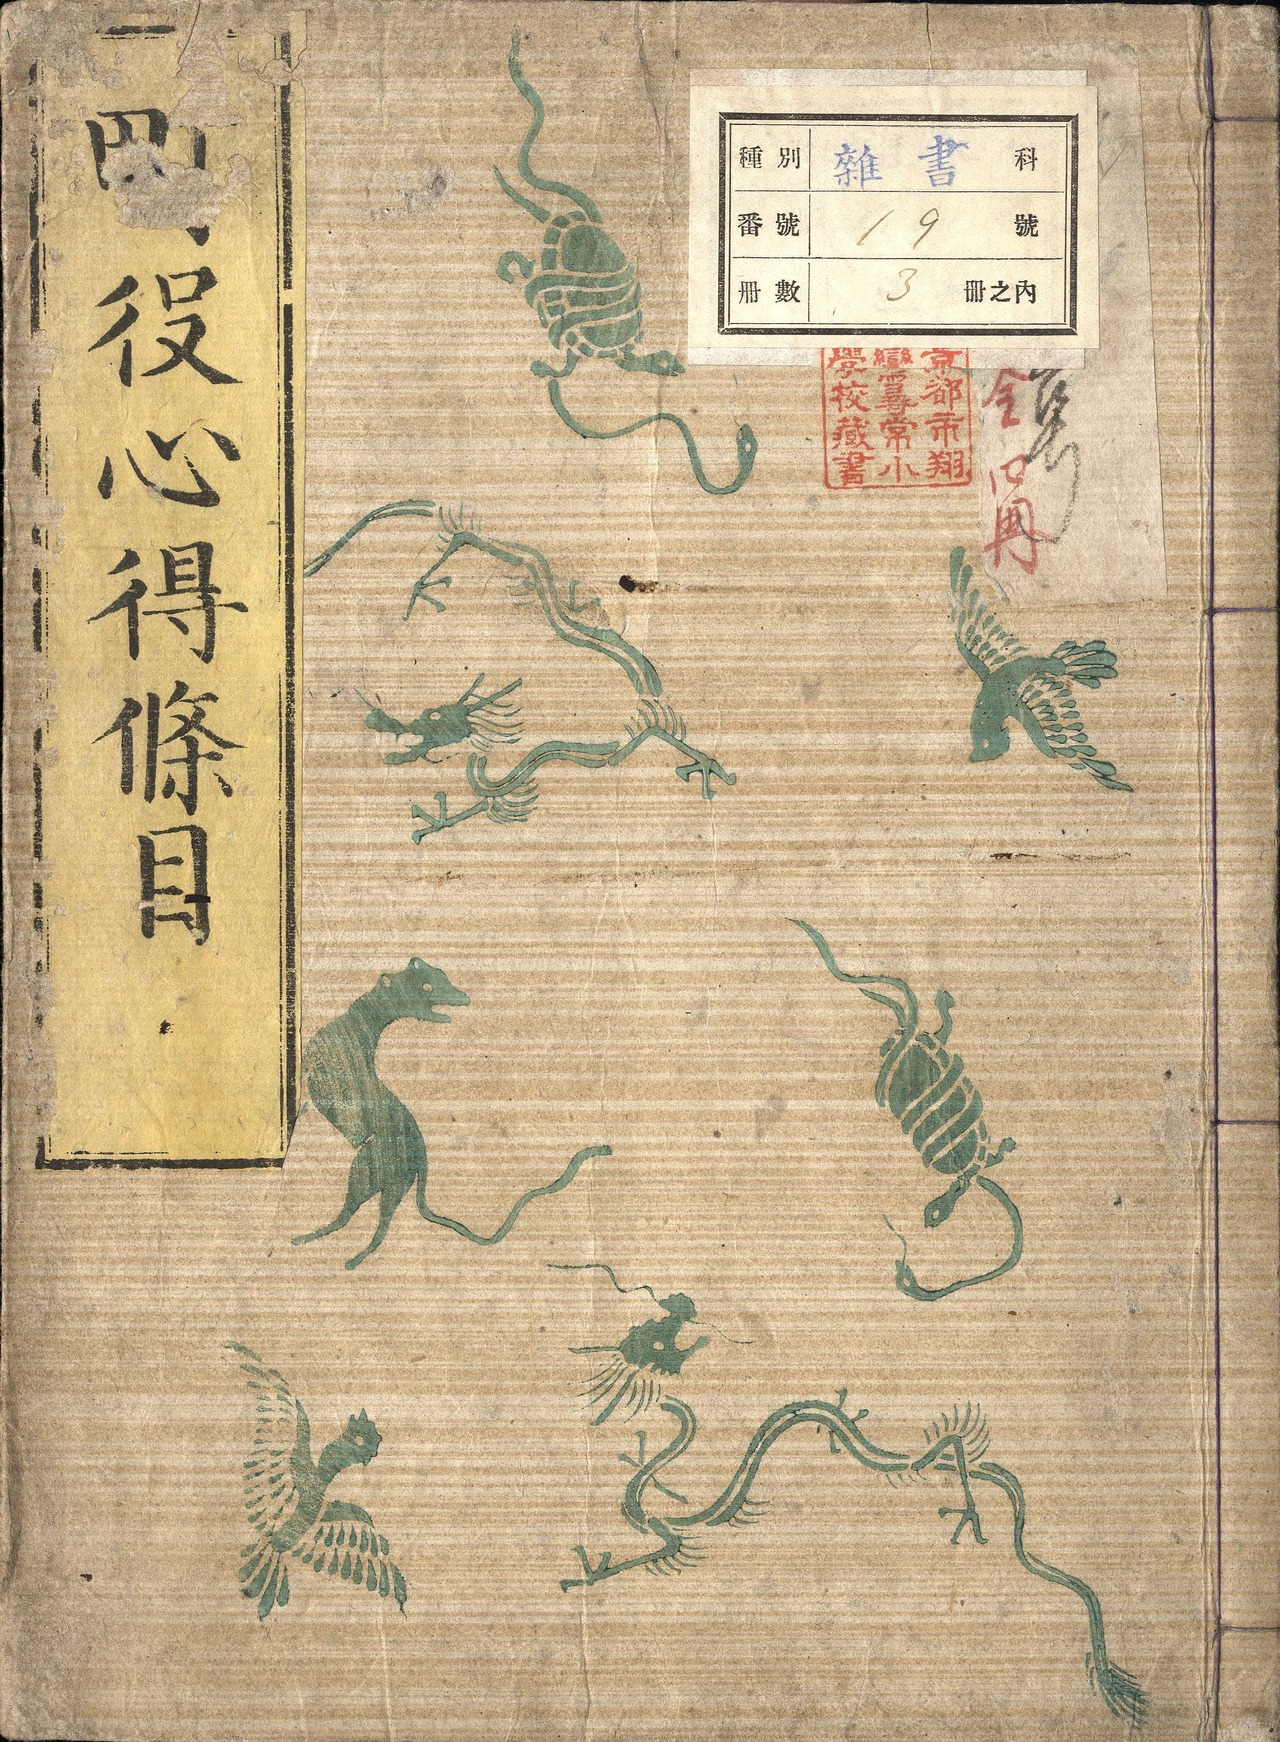 役心得條目
種別 雜書 科
番號 19 號
册數 3 册之內
京都市翔
鸞尋常小
學校藏書
全
冊